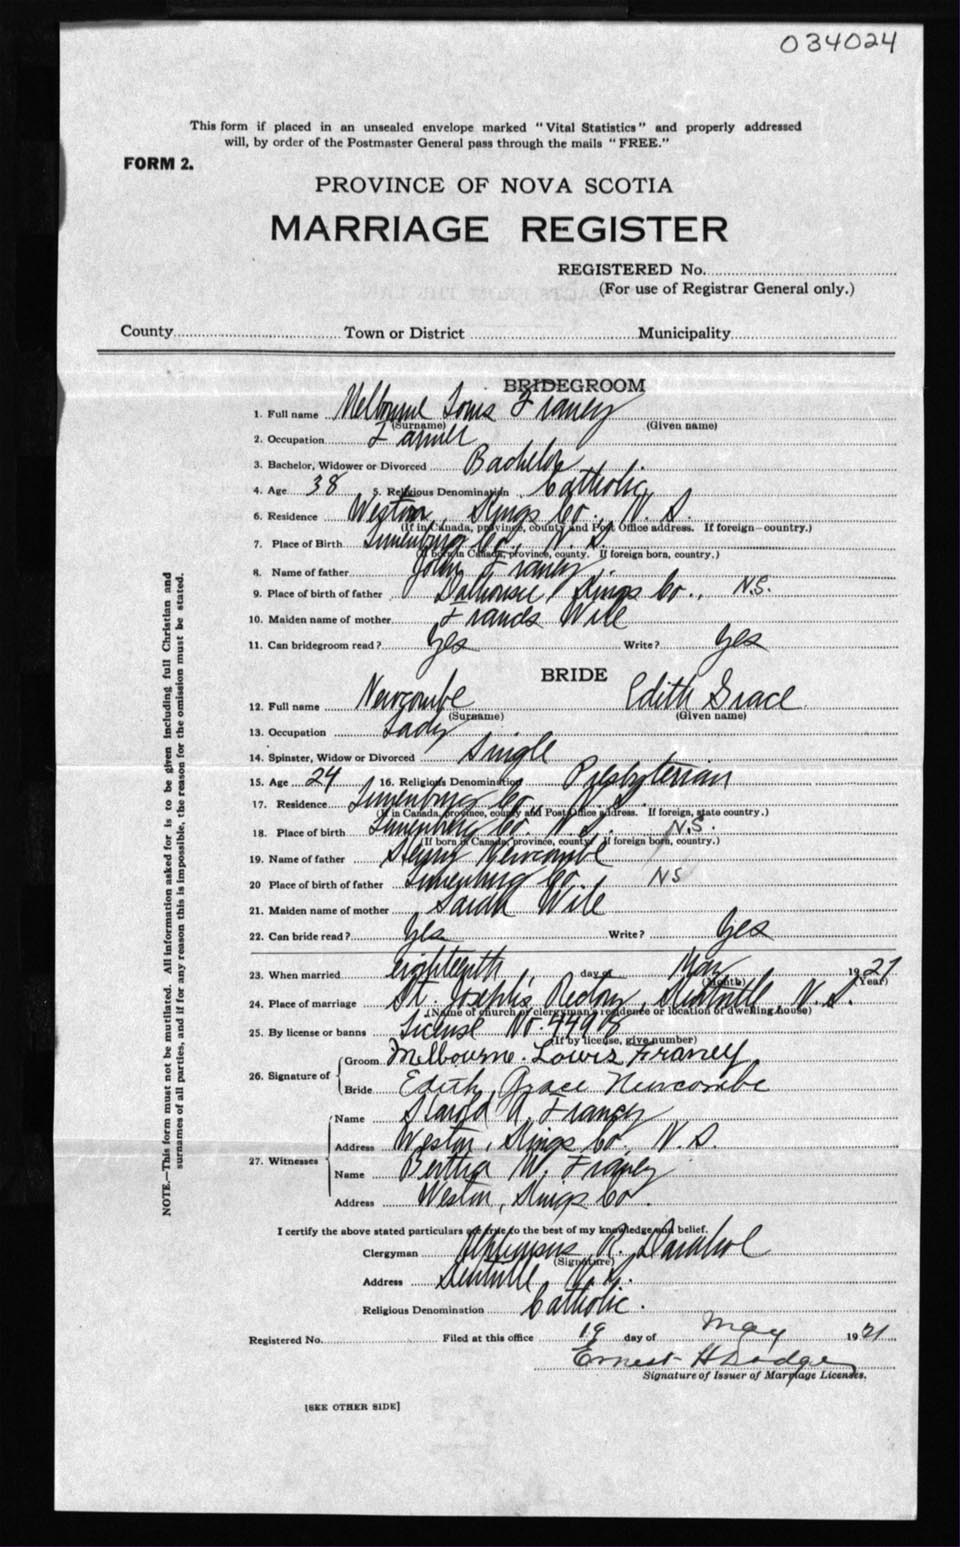 034024
This form if placed in an unsealed envelope marked "Vital Statistics" and properly addressed
will, by order of the Postmaster General pass through the mails "FREE."
FORM 2.
PROVINCE OF NOVA SCOTIA
MARRIAGE REGISTER
REGISTERED No.
(For use of Registrar General only.)
County Town or District Municipality
BRIDEGROOM
1. Full name Melbourne Louis Franey
(Surname) (Given name)
2. Occupation Farmer
3. Bachelor, Widower or Divorced Bachelor
4. Age 38 5. Religious Denomination Catholic
6. Residence Weston, Kings Co., N. S.
(If in Canada, province, county and Post Office address. If foreign—country.)
7. Place of Birth Lunenburg Co., N. S.
(If born in Canada, province, county. If foreign born, country.)
8. Name of father John Franey
9. Place of birth of father Dalhousie, Kings Co., N.S.
10. Maiden name of mother Frances Wile
11. Can bridegroom read? Yes Write? Yes
BRIDE
12. Full name Newcombe Edith Grace
(Surname) (Given name)
13. Occupation Lady
14. Spinster, Widow or Divorced Single
15. Age 24 16. Religious Denomination Presbyterian
17. Residence Lunenburg Co., N. S.
(If in Canada, province, county and Post Office address. If foreign, state country.)
18. Place of birth Lunenburg Co. N. S. N.S.
(If born in Canada, province, county. If foreign born, country.)
19. Name of father Henry Newcombe
20 Place of birth of father Lunenburg Co. NS
21. Maiden name of mother Sarah Wile
22. Can bride read? Yes Write? Yes
23. When married eighteenth day of May 1921
(Month) (Year)
24. Place of marriage St. Joseph's Rectory, Kentville, N. S.
(Name of church or clergyman's residence or location of dwelling house)
25. By license or banns License No. 44908
(If by license, give number)
26. Signature of Groom Melbourne Louis Franey
Bride Edith Grace Newcombe
27. Witnesses Name Harold A. Franey
Address Weston, Kings Co. N. S.
Name Bertha M. Franey
Address Weston, Kings Co.
I certify the above stated particulars are true to the best of my knowledge and belief.
Clergyman R.
(Signature)
Address Kentville N. S.
Religious Denomination Catholic.
Registered No. Filed at this office 19 day of May 1921
Ernest H Dodge
Signature of Issuer of Marriage Licenses.
[SEE OTHER SIDE]
NOTE.—This form must not be mutilated. All information asked for is to be given including full Christian and
surnames of all parties, and if for any reason this is impossible, the reason for the omission must be stated.